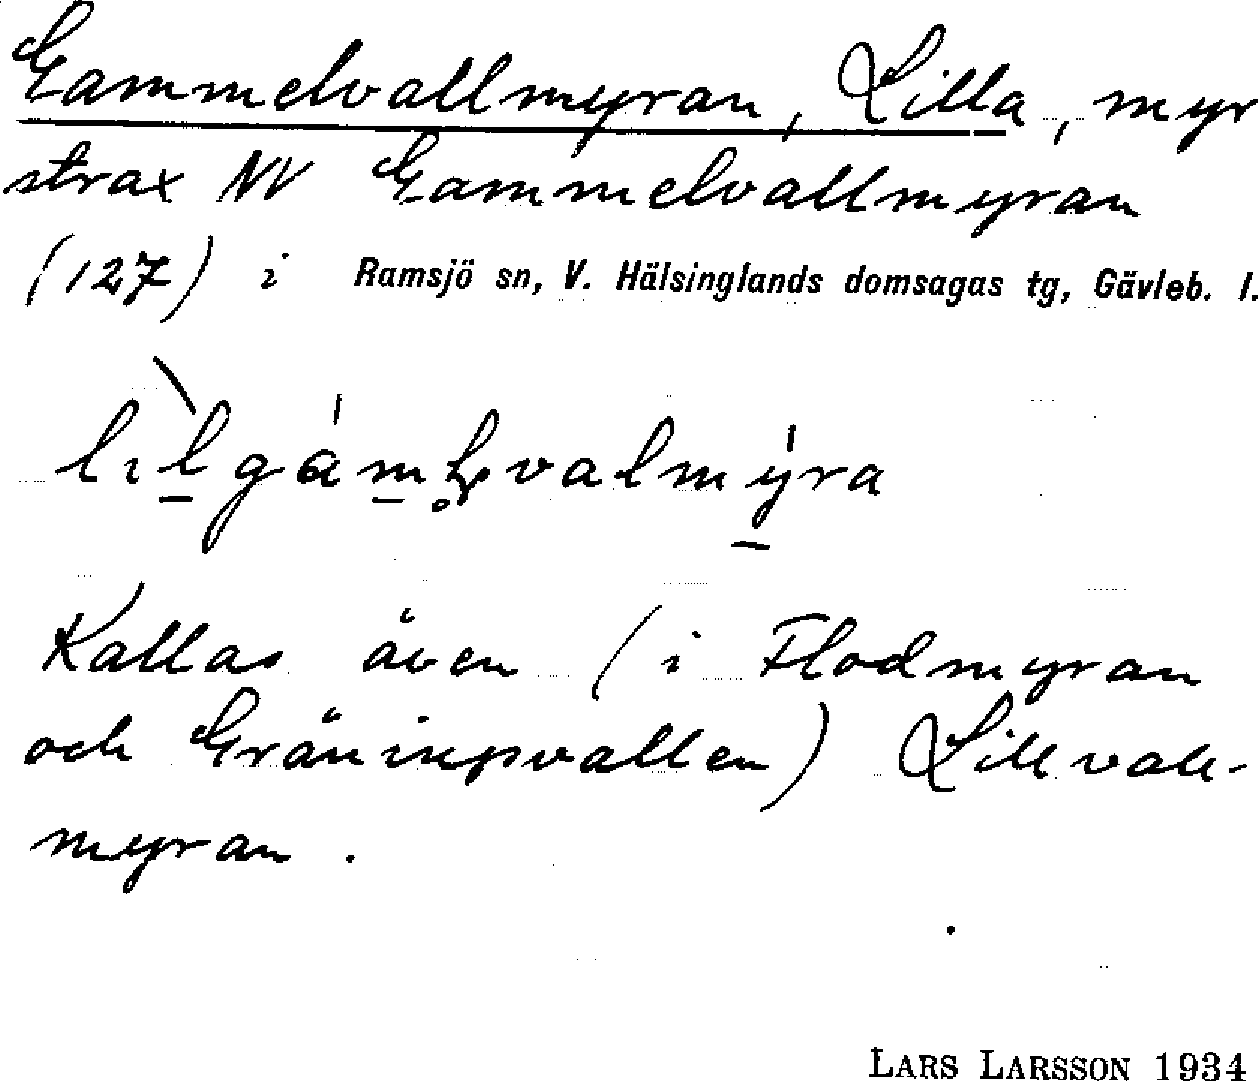 Gammelvallmyran, Lilla, myr
strax NV Gammelvallmyran
(127) i Ramsjö sn, V. Hälsinglands domsagas tg, Gävleb. l.
Kallas även (i Flodmyran
och Gräningsvallen) Lillvall-
myran.
LARS LARSSON 1934